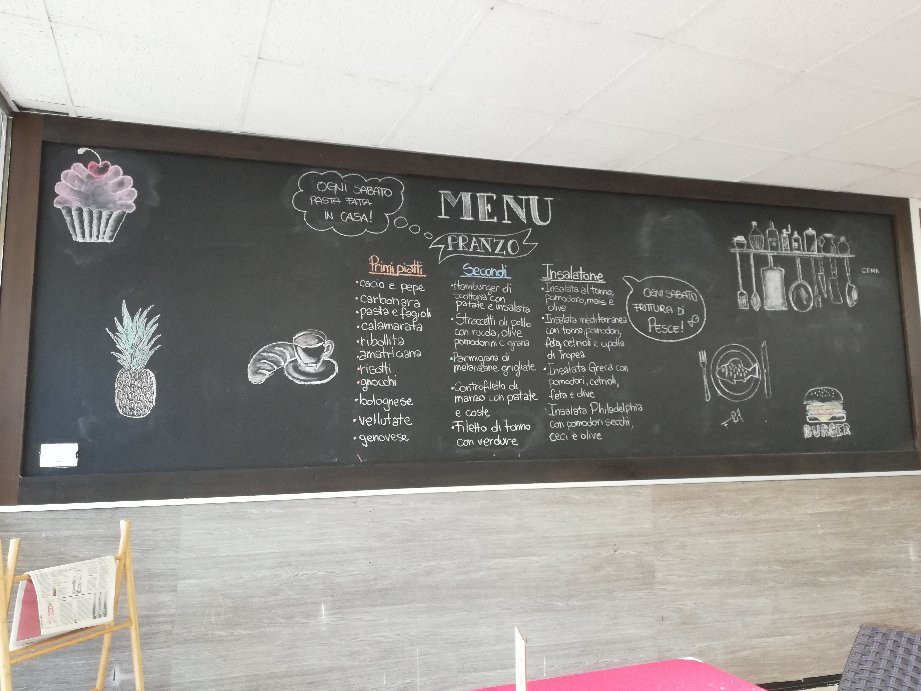 OGNI SABATO
PASTA FATTA
IN CASA!
MENU
PRANZO
Primi piatti
• cacio e pepe
• carbonara
• pasta e fagioli
• calamarata
• ribollita
• amatriciana
• risotti
• gnocchi
• bolognese
• vellutate
• genovese
Secondi
• Hamburger di
scottona con
patate e insalata
• Straccetti di pollo
con rucola, olive
pomodorini e grana
• Parmigiana di
melanzane grigliate
• Controfiletto di
manzo con patate
e coste
• Filetto di tonno
con verdure
Insalatone
• Insalata al tonno,
pomodoro, mais e
olive
• Insalata mediterranea
con tonno, pomodori,
feta, cetrioli e cipolla
di Tropea
• Insalata Greca con
pomodori, cetrioli,
feta e olive
Insalata Philadelphia
con pomodori secchi,
ceci e olive
OGNI SABATO
FRITTURA DI
PESCE!
BURGER